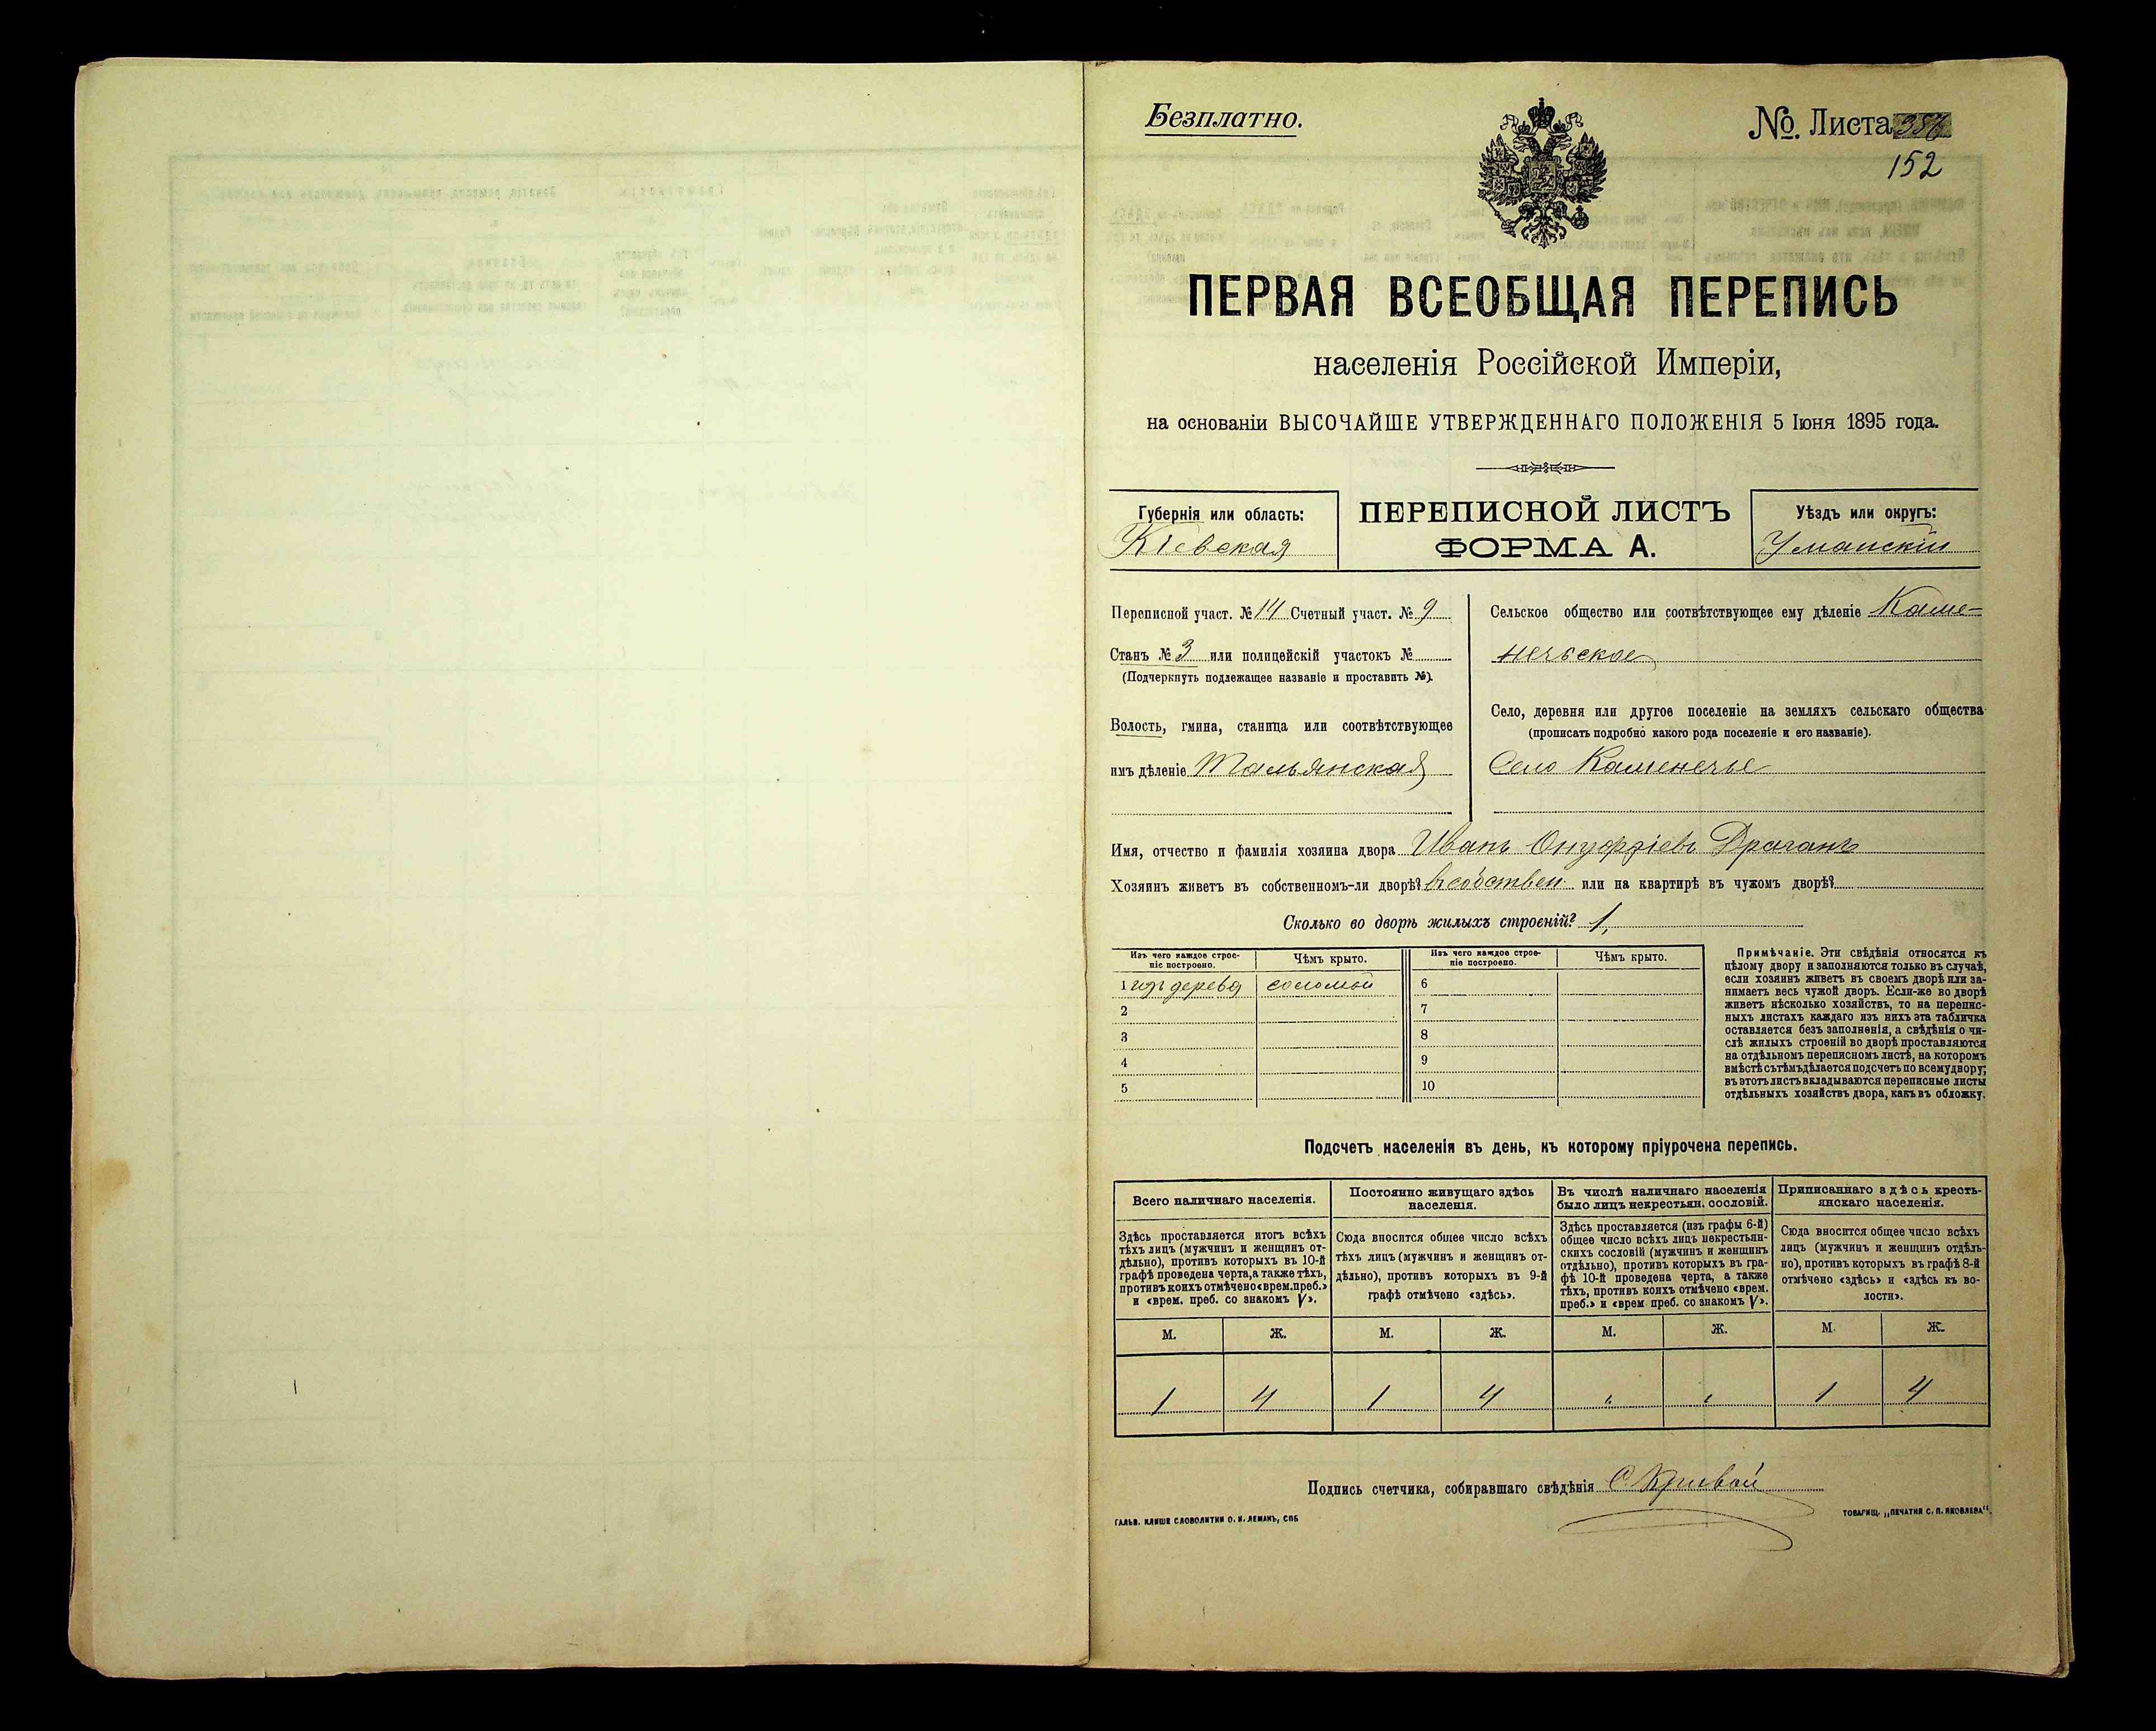 Безплатно.
№. Листа
152
ПЕРВАЯ ВСЕОБЩАЯ ПЕРЕПИСЬ
населенія Россійской Имперіи,
на основаніи ВЫСОЧАЙШЕ УТВЕРЖДЕННАГО ПОЛОЖЕНІЯ 5 Іюня 1895 года.
Губернія или область:
Кіевская
ПЕРЕПИСНОЙ ЛИСТЪ
ФОРМА А.
Уѣздъ или округъ:
Уманскій
Переписной участ. № 14 Счетный участ. № 9
Станъ № 3 или полицейскій участокъ №
(Подчеркнуть подлежащее названіе и проставить №).
Волость, гмина, станица или соотвѣтствующее
имъ дѣленіе Тальянская
Сельское общество или соотвѣтствующее ему дѣленіе Каме-
нечьское
Село, деревня или другое поселеніе на земляхъ сельскаго общества
(прописать подробно какого рода поселеніе и его названіе).
Село Каменечье
Имя, отчество и фамилія хозяина двора Иванъ Онуфріевъ Драганъ
Хозяинъ живетъ въ собственномъ-ли дворѣ? въ собствен. или на квартирѣ въ чужомъ дворѣ?
Сколько во дворѣ жилыхъ строеній? 1,
Изъ чего каждое строе-
ніе построено.
Чѣмъ крыто.
Изъ чего каждое строе-
ніе построено.
Чѣмъ крыто.
1 изъ дерева соломой 6
2 7
3 8
4 9
5 10
Примѣчаніе. Эти свѣдѣнія относятся къ
цѣлому двору и заполняются только въ случаѣ,
если хозяинъ живетъ въ своемъ дворѣ или за-
нимаетъ весь чужой дворъ. Если-же во дворѣ
живетъ нѣсколько хозяйствъ, то на перепис-
ныхъ листахъ каждаго изъ нихъ эта табличка
оставляется безъ заполненія, а свѣдѣнія о чи-
слѣ жилыхъ строеній во дворѣ проставляются
на отдѣльномъ переписномъ листѣ, на которомъ
вмѣстѣ съ тѣмъ дѣлается подсчетъ по всему двору;
въ этотъ листъ вкладываются переписные листы
отдѣльныхъ хозяйствъ двора, какъ въ обложку.
Подсчетъ населенія въ день, къ которому пріурочена перепись.
Всего наличнаго населенія.
Здѣсь проставляется итогъ всѣхъ
тѣхъ лицъ (мужчинъ и женщинъ от-
дѣльно), противъ которыхъ въ 10-й
графѣ проведена черта, а также тѣхъ,
противъ коихъ отмѣчено «врем. преб.»
и «врем. преб. со знакомъ V».
Постоянно живущаго здѣсь
населенія.
Сюда вносится общее число всѣхъ
тѣхъ лицъ (мужчинъ и женщинъ от-
дѣльно), противъ которыхъ въ 9-й
графѣ отмѣчено «здѣсь».
Въ числѣ наличнаго населенія
было лицъ некрестьян. сословій.
Здѣсь проставляется (изъ графы 6-й)
общее число всѣхъ лицъ некрестьян-
скихъ сословій (мужчинъ и женщинъ
отдѣльно), противъ которыхъ въ гра-
фѣ 10-й проведена черта, а также
тѣхъ, противъ коихъ отмѣчено «врем.
преб.» и «врем преб. со знакомъ V».
Приписаннаго здѣсь кресть-
янскаго населенія.
Сюда вносится общее число всѣхъ
лицъ (мужчинъ и женщинъ отдѣль-
но), противъ которыхъ въ графѣ 8-й
отмѣчено «здѣсь» и «здѣсь къ во-
лости».
М. Ж. М. Ж. М. Ж. М. Ж.
1 4 1 4 " " 1 4
Подпись счетчика, собиравшаго свѣдѣнія С. Кривой
ГАЛЬВ. КЛИШЕ СЛОВОЛИТНИ О. И. ЛЕМАНЪ, СПБ
ТОВАРИЩ. „ПЕЧАТНЯ С. П. ЯКОВЛЕВА".